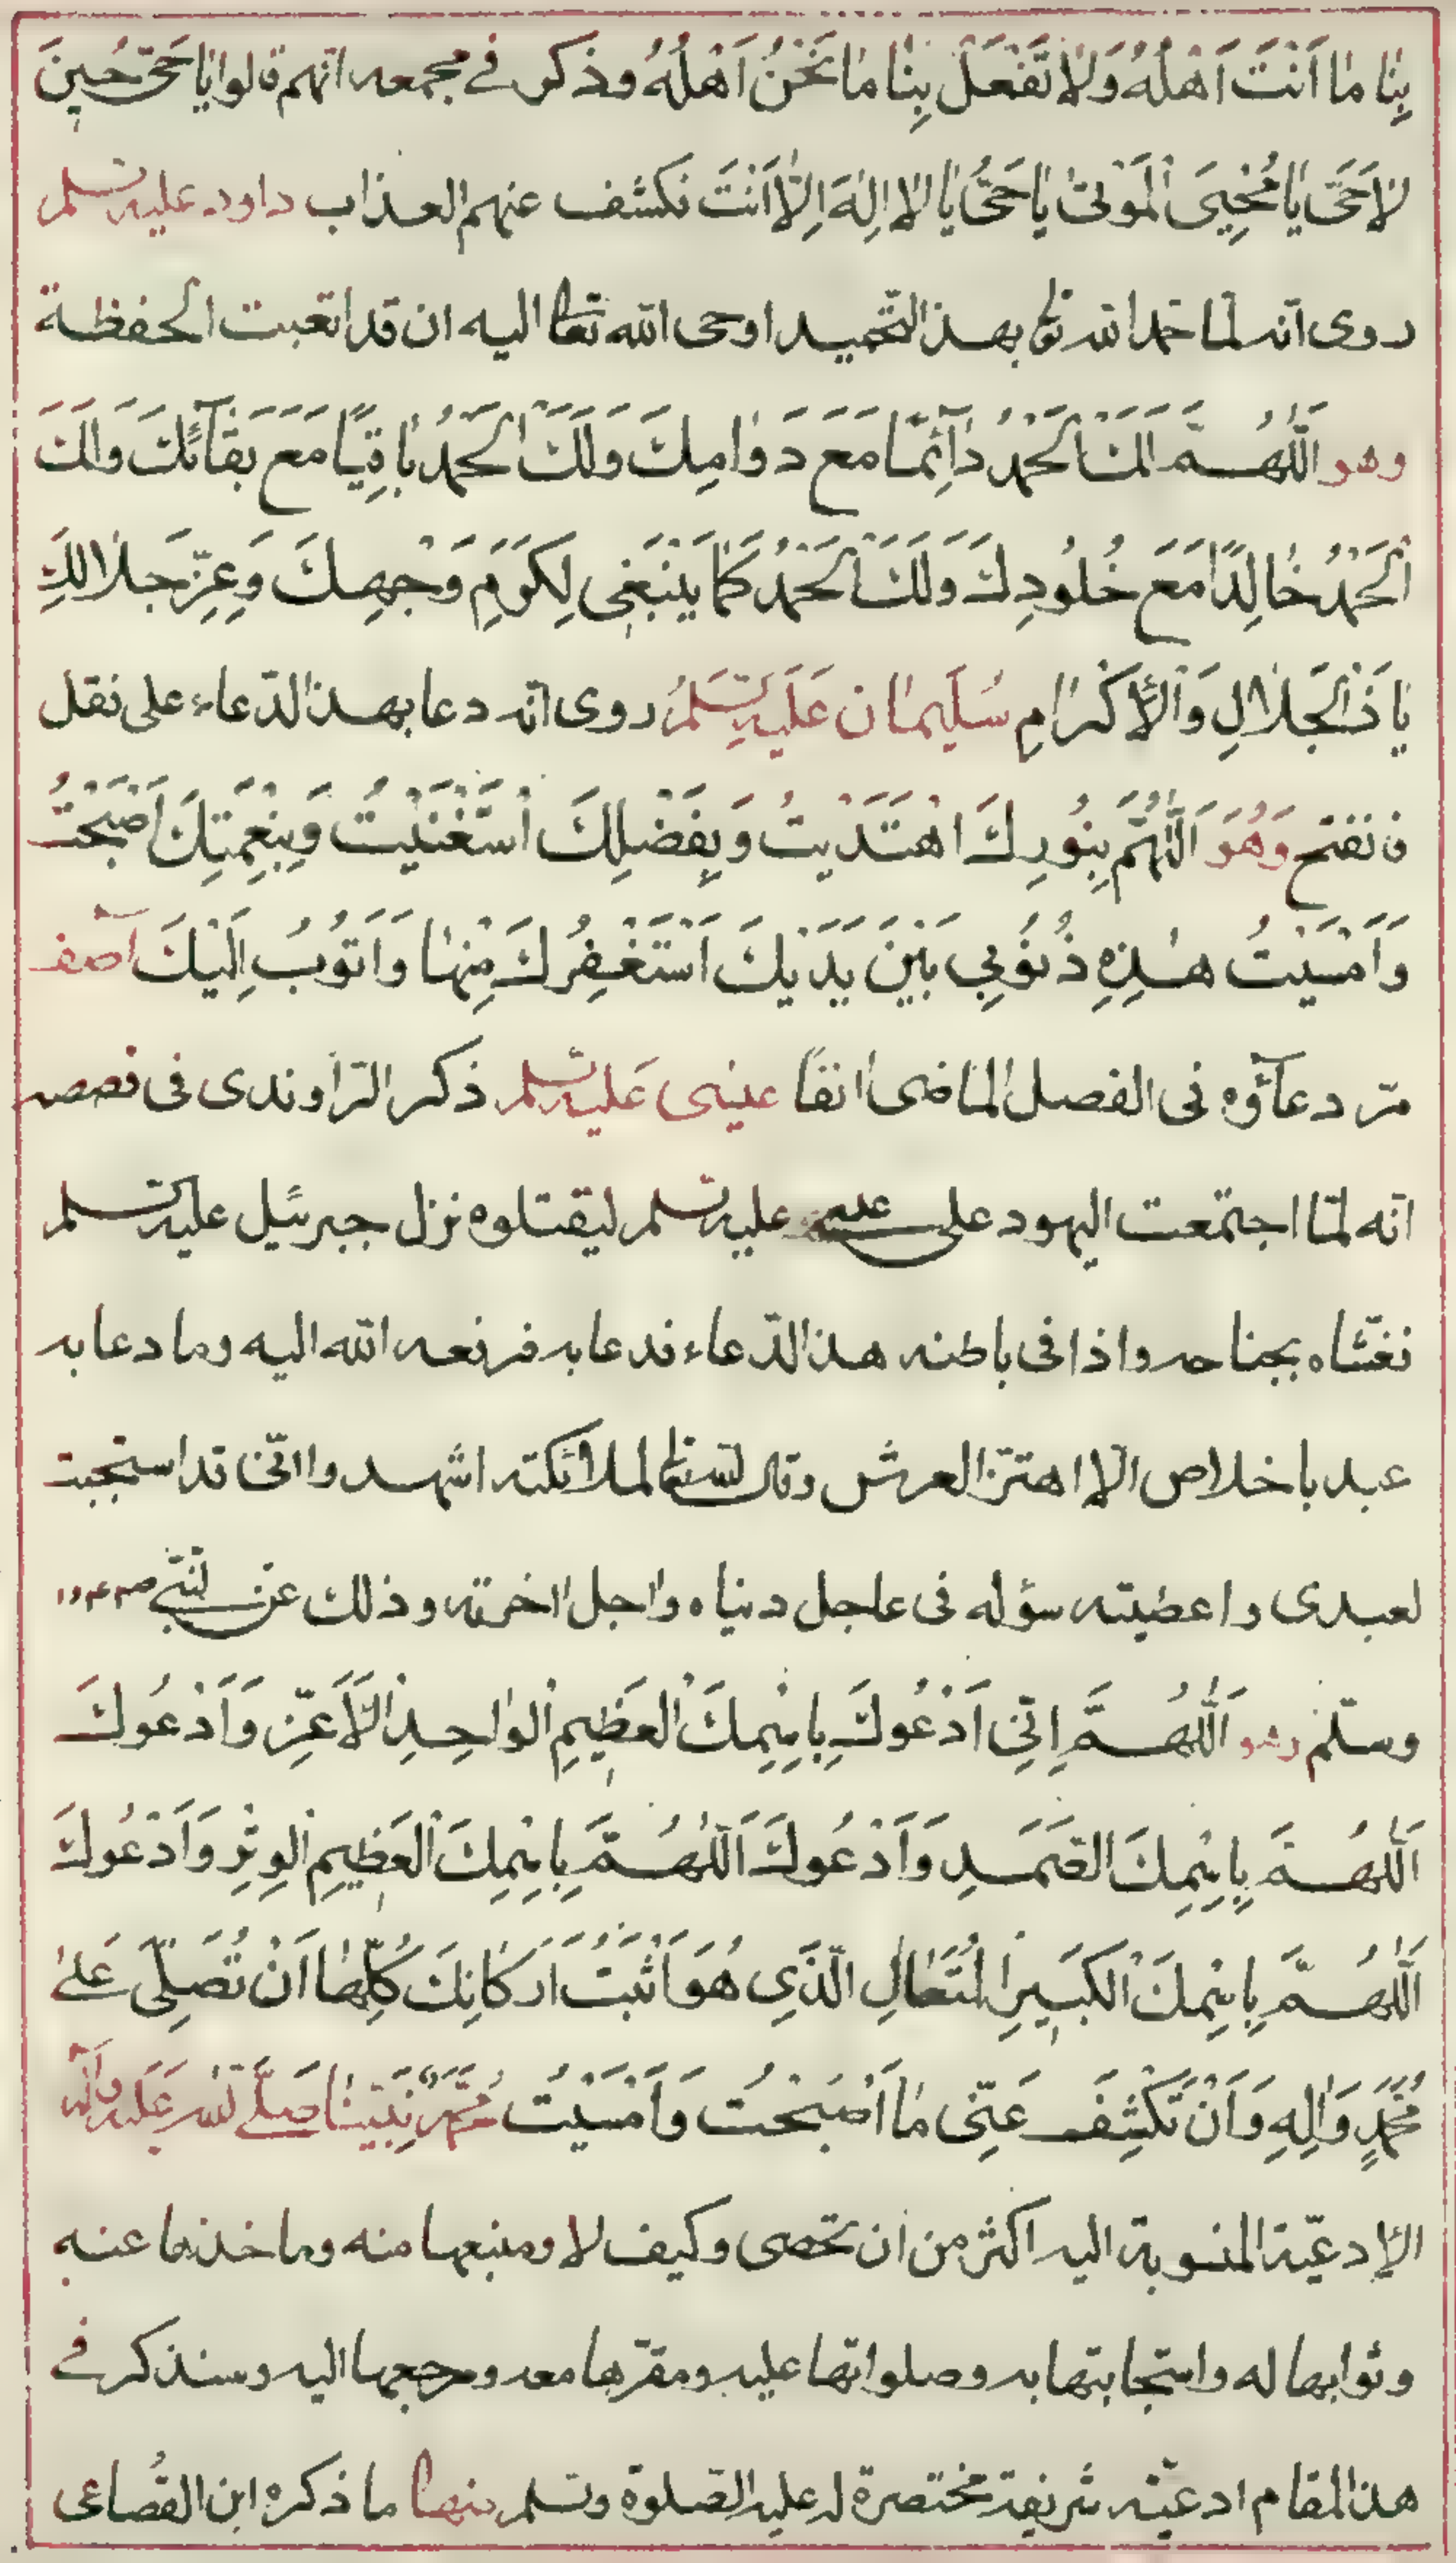 بِنٰا مٰا اَنْتَ اَهْلُهُ وَلاٰ تَفْعَلْ بِنٰا مٰا نَحْنُ اَهْلُهُ وذكر في مجمعه انّهم قالوا يٰا حَىُّ حٖينَ
لاٰ حَىَّ يٰا مُحْيِىَ الْمَوْتىٰ يٰا حَىُّ يٰا لاٰ اِلٰهَ اِلّاٰ اَنْتَ فكشف عنهم العذاب داود عليه السلم
روى انّه لمّا حمد الله تعٰ بهذا التّحميد اوحى الله تعالى اليه ان قد اتعبت الحفظة
وهو اَللّٰهُمَّ لَكَ الْحَمْدُ دٰآئِمًا مَعَ دَوٰامِكَ وَلَكَ الْحَمْدُ بٰاقِيًا مَعَ بَقٰآئِكَ وَلَكَ
اَلْحَمْدُ خٰالِدًا مَعَ خُلُودِكَ وَلَكَ الْحَمْدُ كَمٰا يَنْبَغٖى لِكَرَمِ وَجْهِكَ وَعِزِّ جَلاٰلِكَ
يٰا ذَا الْجَلاٰلِ وَالْاِكْرٰامِ سُلَيمٰان عَلَيهِ السّلمُ روى انّه دعا بهذا الدّعاء على نقل
فانفتح وَهُوَ اَللّٰهُمَّ بِنُورِكَ اهْتَدَيْتُ وَبِفَضْلِكَ اسْتَغْنَيْتُ وَبِنِعْمَتِكَ اَصْبَحْتُ
وَاَمْسَيْتُ هٰذِهِ ذُنُوبي بَيْنَ يَدَيْكَ اَسْتَغْفِرُكَ مِنْهٰا وَاَتُوبُ اِلَيْكَ اٰصف
مرّ دعآؤه فى الفصل الماضى اٰنفًا عيسى عليه السلم ذكر الرّاوندى فى قصصه
انّه لمّا اجتمعت اليهود على عيسى عليه السلم ليقتلوه نزل جبرئيل عليه السلم
فغشّاه بجناحه واذا فى باطنه هذا الدّعاء فدعا به فرفعه الله اليه وما دعا به
عبد باخلاص الّا اهتزّ العرش وقال الله تعالى لملائكته اشهدوا انّى قد استجبت
لعبدى واعطيته سؤله فى عاجل دنياه واجل اخرته وذلك عن النّبى
وسلّم وهو اَللّٰهُمَّ اِنّٖى اَدْعُوكَ بِاسْمِكَ الْعَظٖيمِ الْوٰاحِدِ الْاَعَزِّ وَاَدْعُوكَ
اَللّٰهُمَّ بِاسْمِكَ الصَّمَدِ وَاَدْعُوكَ اَللّٰهُمَّ بِاسْمِكَ الْعَظٖيمِ الْوِتْرِ وَاَدْعُوكَ
اَللّٰهُمَّ بِاسْمِكَ الْكَبٖيرِ الْمُتَعٰالِ الَّذِى هُوَ اَثْبَتُ اَرْكٰانِكَ كُلِّهٰا اَنْ تُصَلِّىَ عَلىٰ
مُحَمَّدٍ وَاٰلِهِ وَاَنْ تَكْشِفَ عَنّٖى مٰا اَصْبَحْتُ وَاَمْسَيْتُ مُحَمَّد نَبيّنٰا صلّى الله عليه واله
الادعيّة المنسوبة اليه اكثر من ان تحصى وكيف لا ومنبعها منه وماخذها عنه
وثوابها له واستجابتها به وصلواتها عليه ومقرّها معه ومرجعها اليه وسنذكر في
هذا المقام ادعيّة شريفة مختصرة له عليه الصّلوة والسلم منها ما ذكره ابن القُضاعى